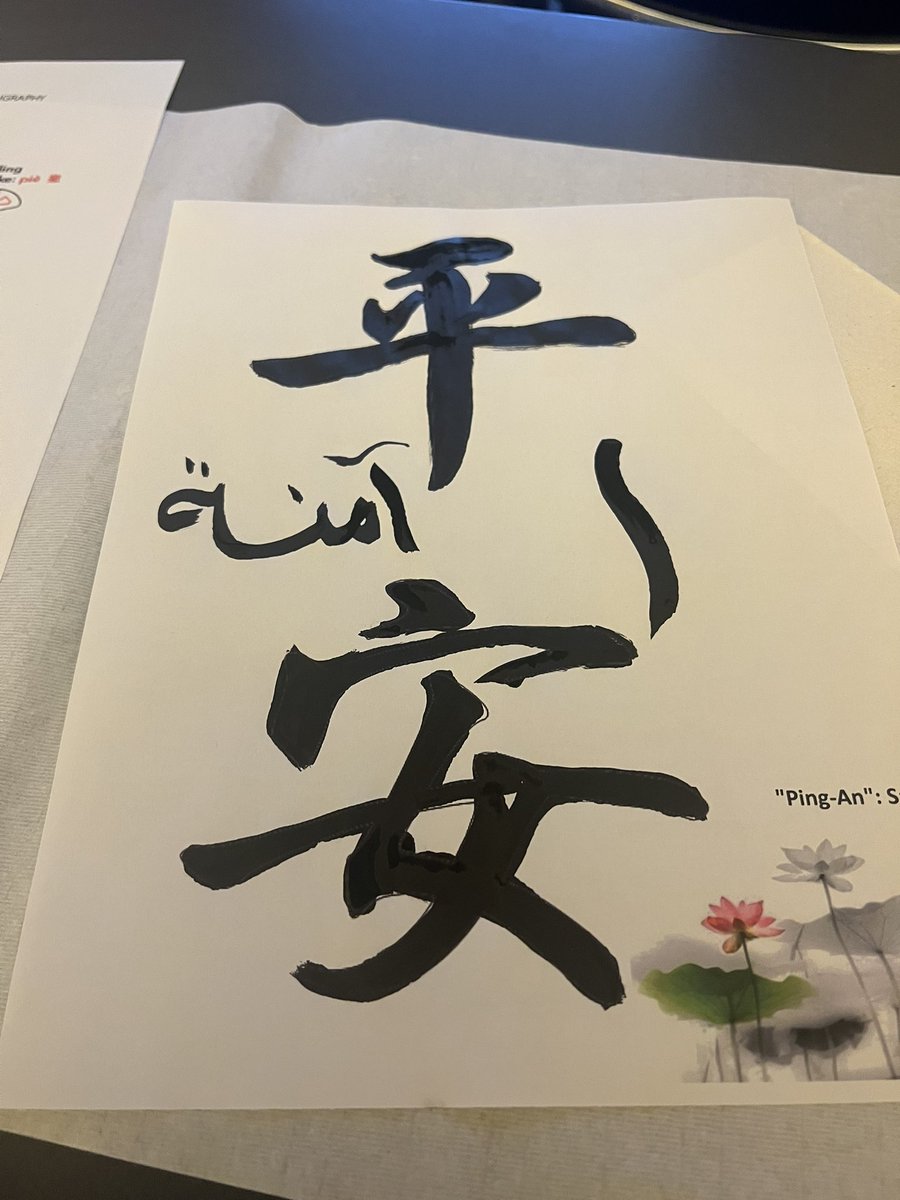 GRAPHY
ling
ke: piě 撇
平
آمنة
安
"Ping-An": S